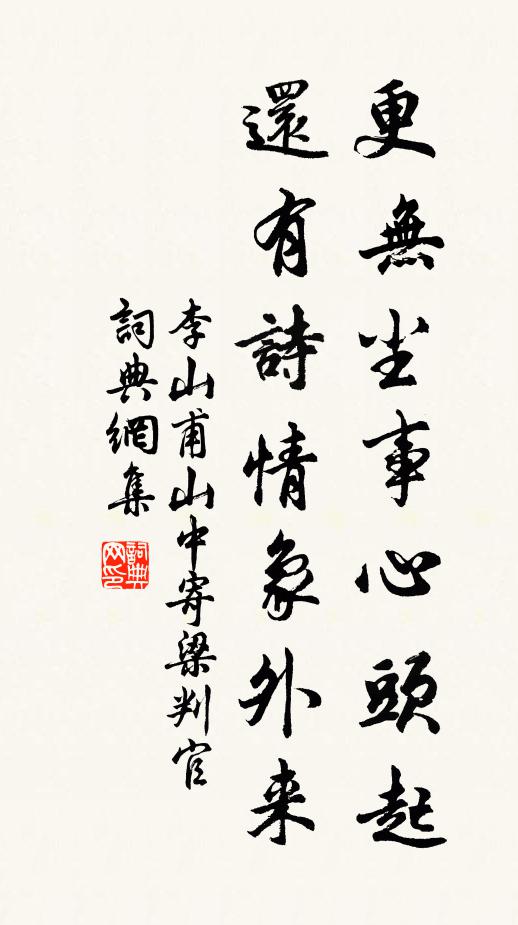 更無尘事心頭起
還有詩情象外来
李山甫山中寄梁判官
詞典網集
詞典
网印